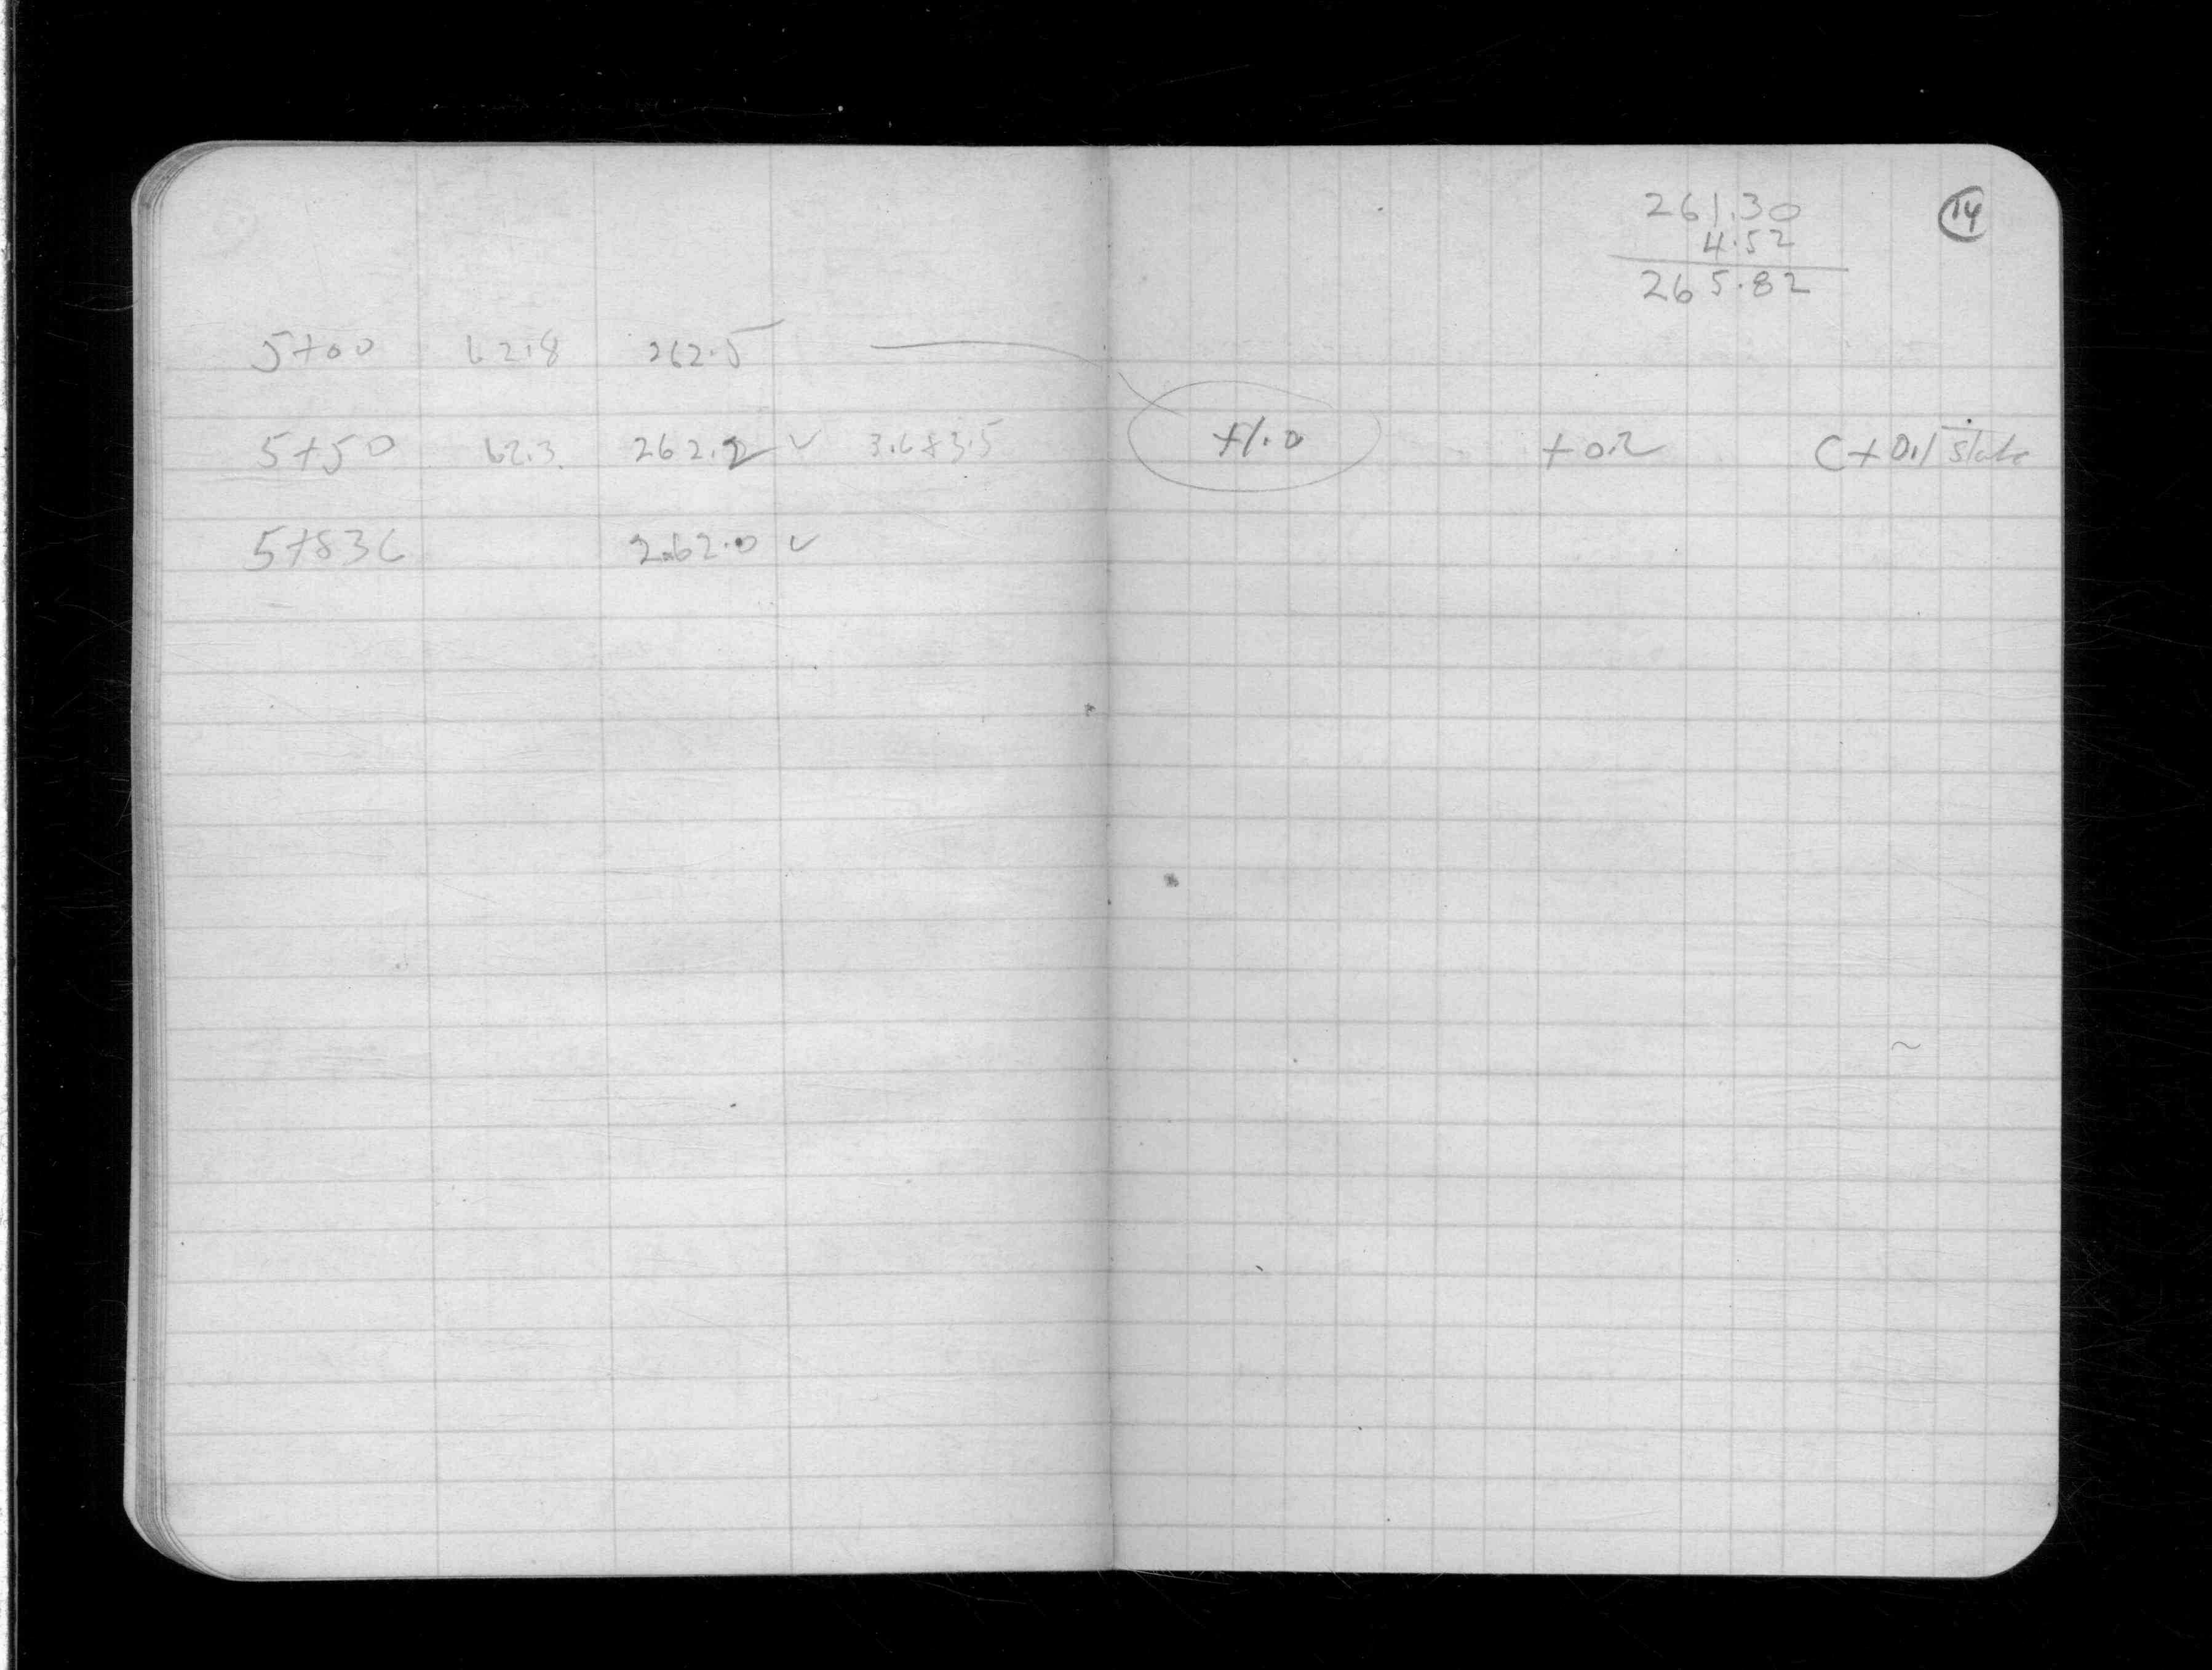 261.30 14
4.52
265.82
5+00 62.8 262.5
5+50 62.3 262.2 ✓ 3.6 & 3.5 +1.0 +0.2 C+0.1 stake
5+836 262.0 ✓